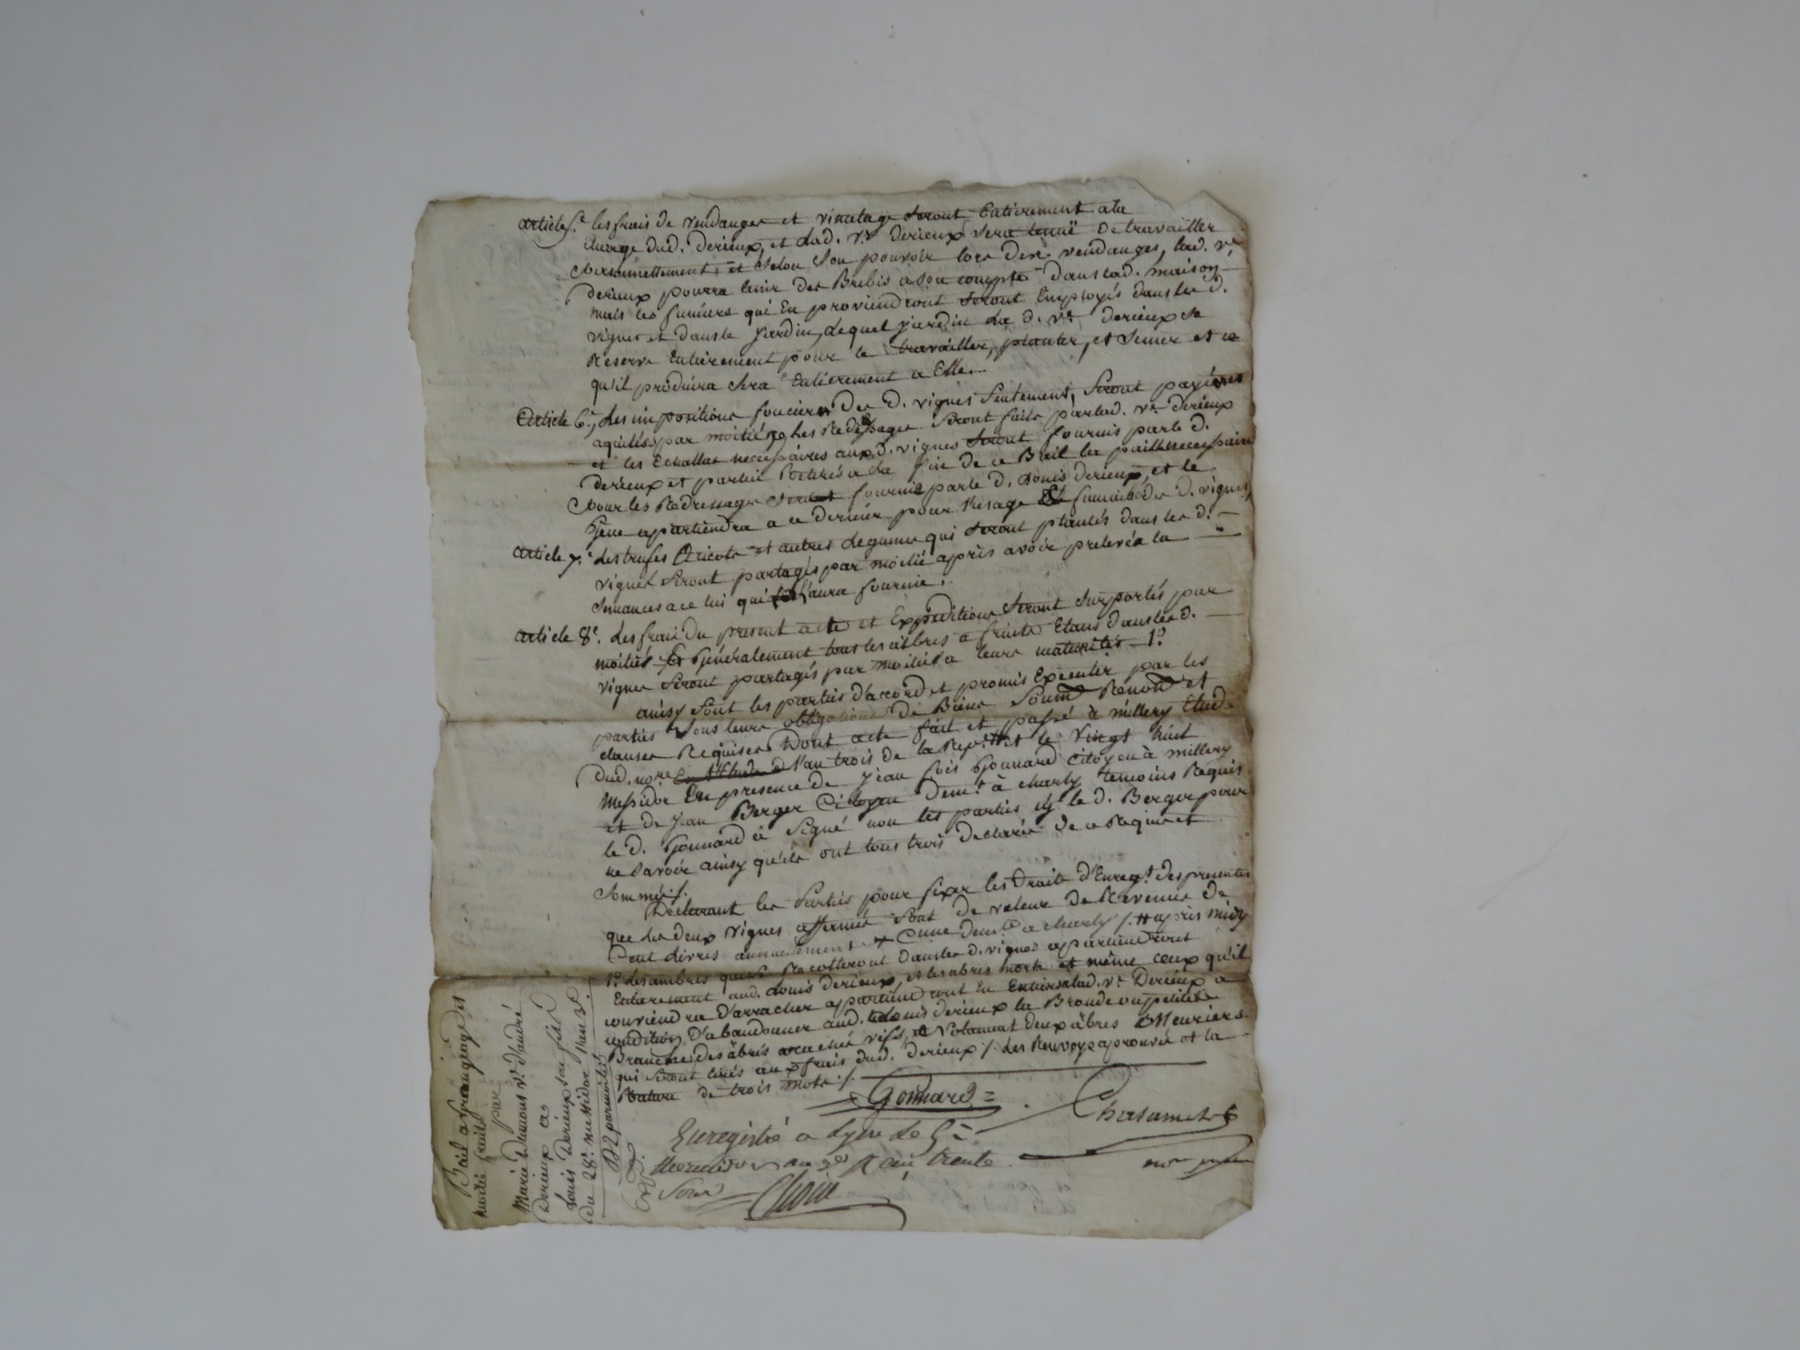 article 5.e les frais de vendanges et vinelage seront Entierement ala
charge dud. Derieux, et lad. v.e Derieux sera tenuë De travailler
personnellement, et selon son pouvoir lors des vendanges, lad. v.e
derieux pourra tenir des Brebis a son compte dans lad. maison
mais les fumiers qui En proviendront seront Employés dans les d.
vignes et dans le jardin, lequel jardin la d. v.e derieux se
Reserve Entierement pour le travailler, planter, et semer et ce
qu'il produira sera Entierement a Elle.
article 6.e, les impositions foncieres Des d. vignes seulement, seront payées
aquitées par moitié, les Redressages seront faits par lad. v.e derieux
et les Echallas necessaires aux d. vignes seront fournis par le d.
derieux et par lui Retirés a la fin de ce Bail les paille necessaire
pour les Redressages fournie par le d. Louis derieux, et le
gene apartiendra a ce dernier pour l'usage fumier des d. vignes
article 7.e les trufes aricots et autres legumes qui seront plantés dans les d.
vignes seront partagés par moitié après avoir prelevés la
semances a ce lui qui l'aura fournie.
article 8.e. les frais du present acte et Expeditions seront suportés par
moitié Généralement tous les arbres a fruits Etans dans les d.
vignes seront partagés par moitié a leurs maturités 1.o
ainsy sont les parties d'accord et promis Executer par les
parties sous leurs obligations De Biens soumis Renon et
clauses Requises Dont acte fait et passé à millery Etude
dud. no.re l'an trois de la Rep. et le vingt huit
Messidor En presence de Jean fois Gonnard citoyen à millery
et de Jean Berger Citoyen dem.t à charly temoins Requis
le d. Gonnard à signé non les parties ny le d. Berger pour
ne savoir ainsy qu'ils ont tous trois declarés de ce Requis et
sommés /.
Declarant les parties pour fixer les Droits d'Enreg.t des presentes
que les deux vignes affermés sont de valeur de Revenus De
Cent livres annuelement dem.t a charly /. après midy
1.o les ambres qui se Recolteront dans les d. vignes apartiendront
Entierement aud. Louis derieux, et les arbres morts et même ceux qu'il
conviendra D'arracher apartiendront En Entier a lad. v.e Derieux a
condition D'abandonner aud. Louis derieux la Bronde ou petites
Branches des arbres arachés vifs, et Notament deux arbres Meuriers
qui seront tirés aux frais dud. derieux /. les Renvoys aprouvés et la
Rature de trois mots /.
Gonnard
Enregistré a Lyon le 5
Thermidor an 3e Reçu trente
sous
Bail a grangeage des
moitié fruits
par
Marie Dumons v.e d'andré
Derieux a
Louis Derieux son fils
Du 28.e messidor l'an 3.e